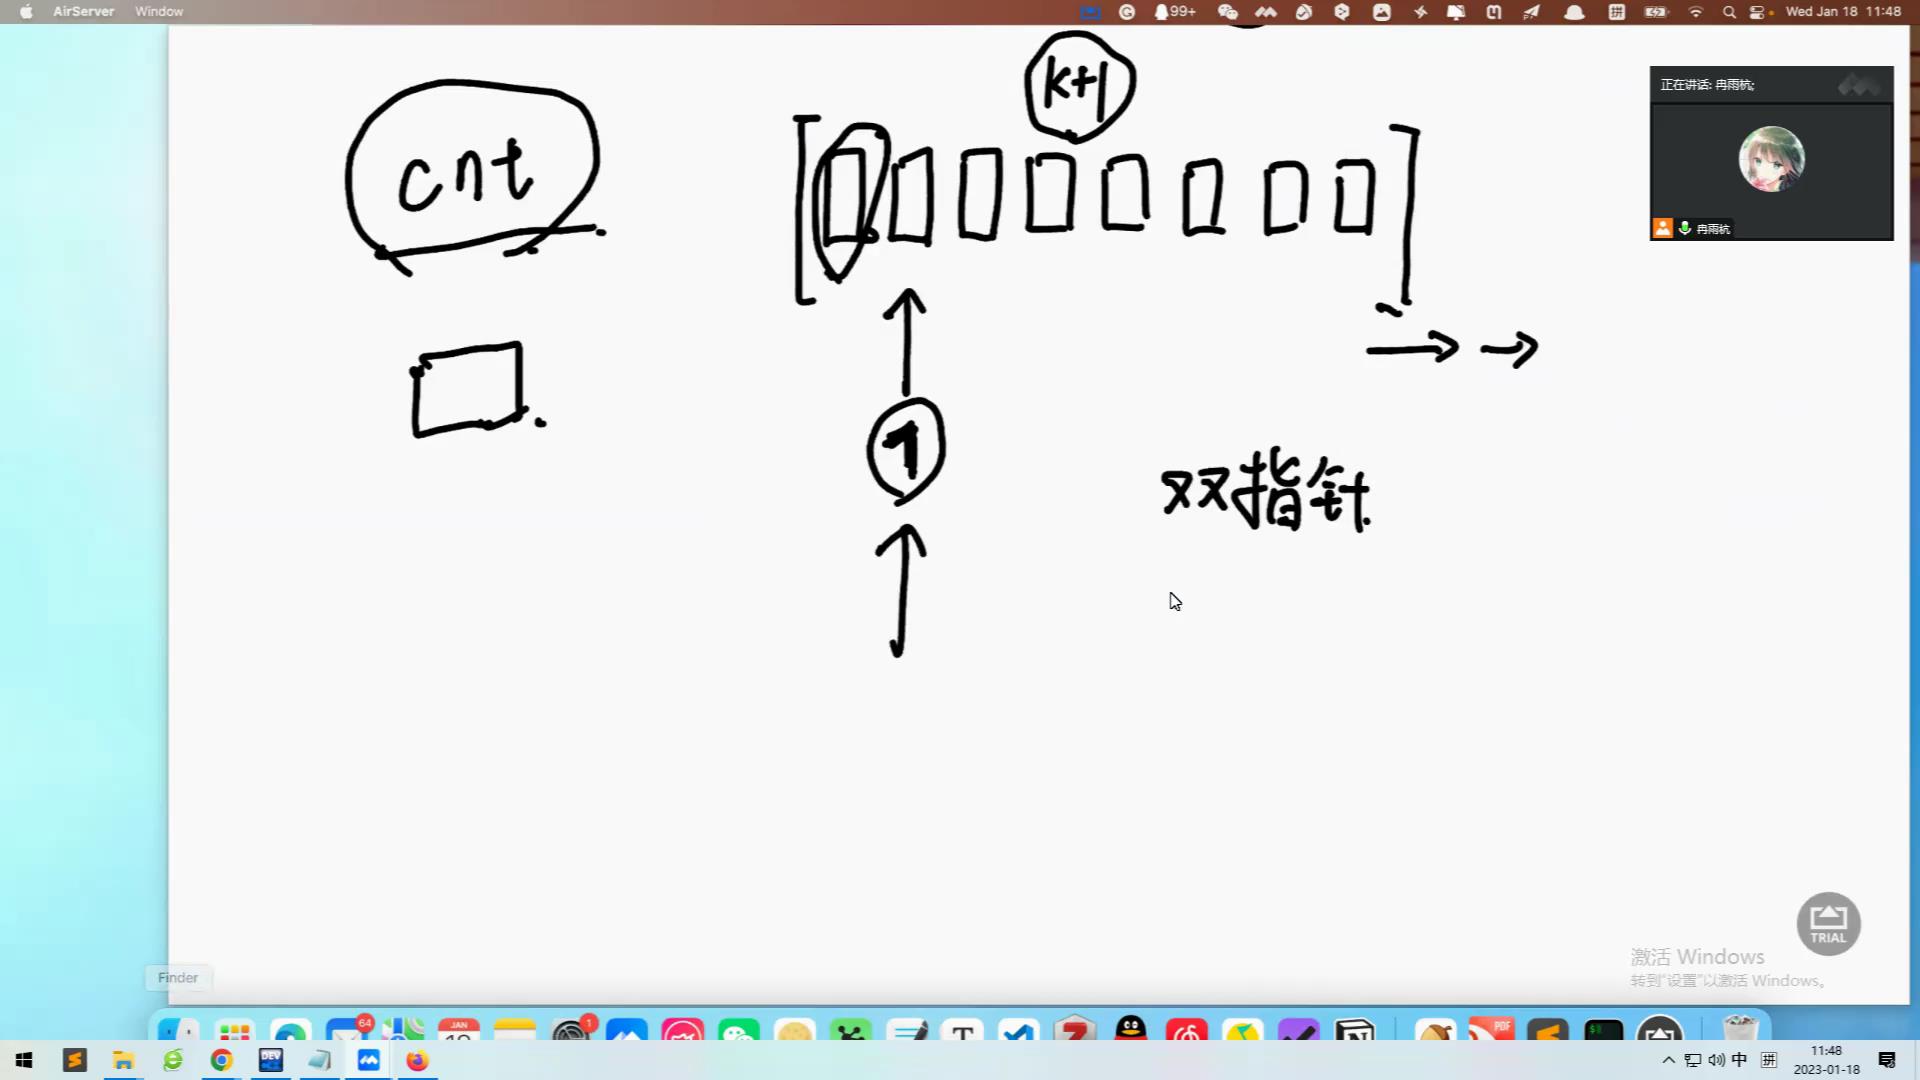 AirServer Window
99+
Wed Jan 18 11:48
k+1
cnt
正在讲话: 冉雨杭;
冉雨杭
1
双指针
TRIAL
激活 Windows
转到“设置”以激活 Windows。
Finder
64
JAN
1
PDF
DEV
中
拼
11:48
2023-01-18